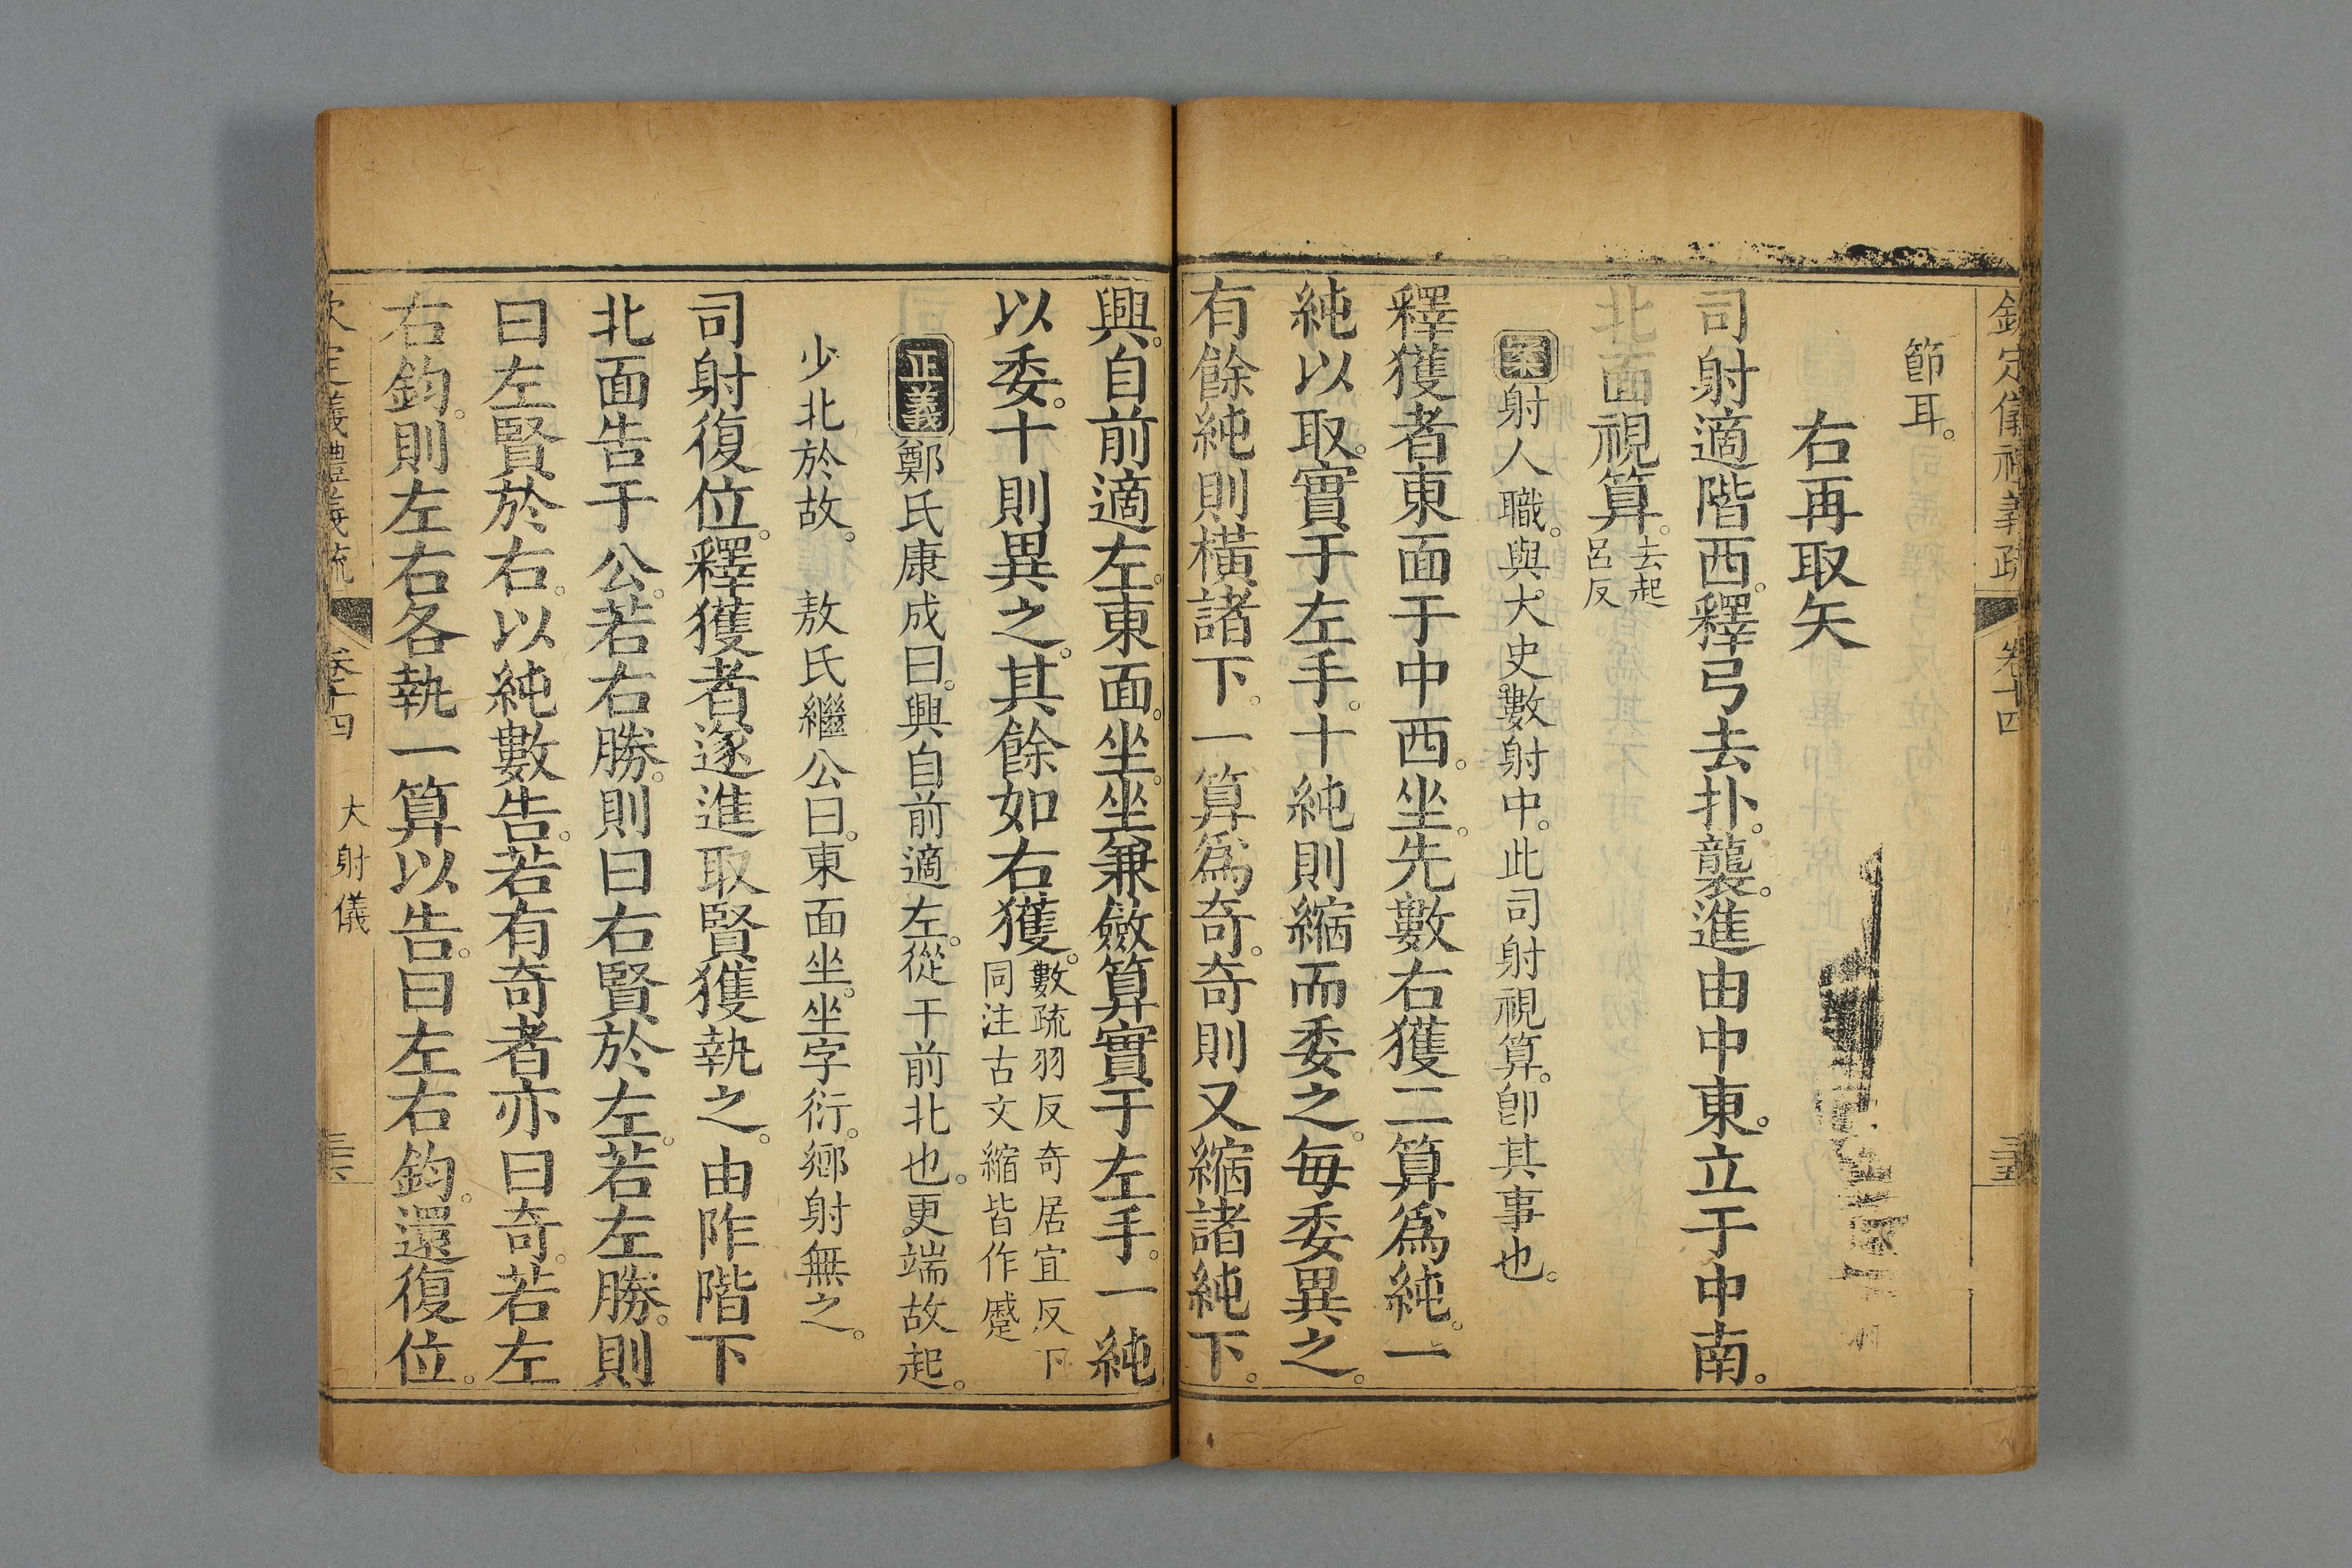 欽定儀禮義疏 卷十四
節耳。
右再取矢
司射適階西。釋弓去扑。襲。進由中東。立于中南。
北面視算。去起呂反
案射人職。與大史數射中。此司射視算。卽其事也。
釋獲者東面于中西。坐。先數右獲二算爲純。一
純以取。實于左手。十純則縮而委之。每委異之。
有餘純則橫諸下。一算爲奇。奇則又縮諸純下。
興。自前適左。東面。坐。坐兼斂算實于左手。一純
以委。十則異之。其餘如右獲。數疏羽反奇居宜反下同注古文縮皆作蹙
正義鄭氏康成曰。興自前適左。從干前北也。更端故起。
少北於故。 敖氏繼公曰。東面坐。坐字衍。鄉射無之。
司射復位。釋獲者遂進取賢獲執之。由阼階下
北面告于公。若右勝。則曰右賢於左。若左勝。則
曰左賢於右。以純數告。若有奇者亦曰奇。若左
右鈞。則左右各執一算以告。曰左右鈞。還復位。
欽定義禮義疏 卷十四 大射儀